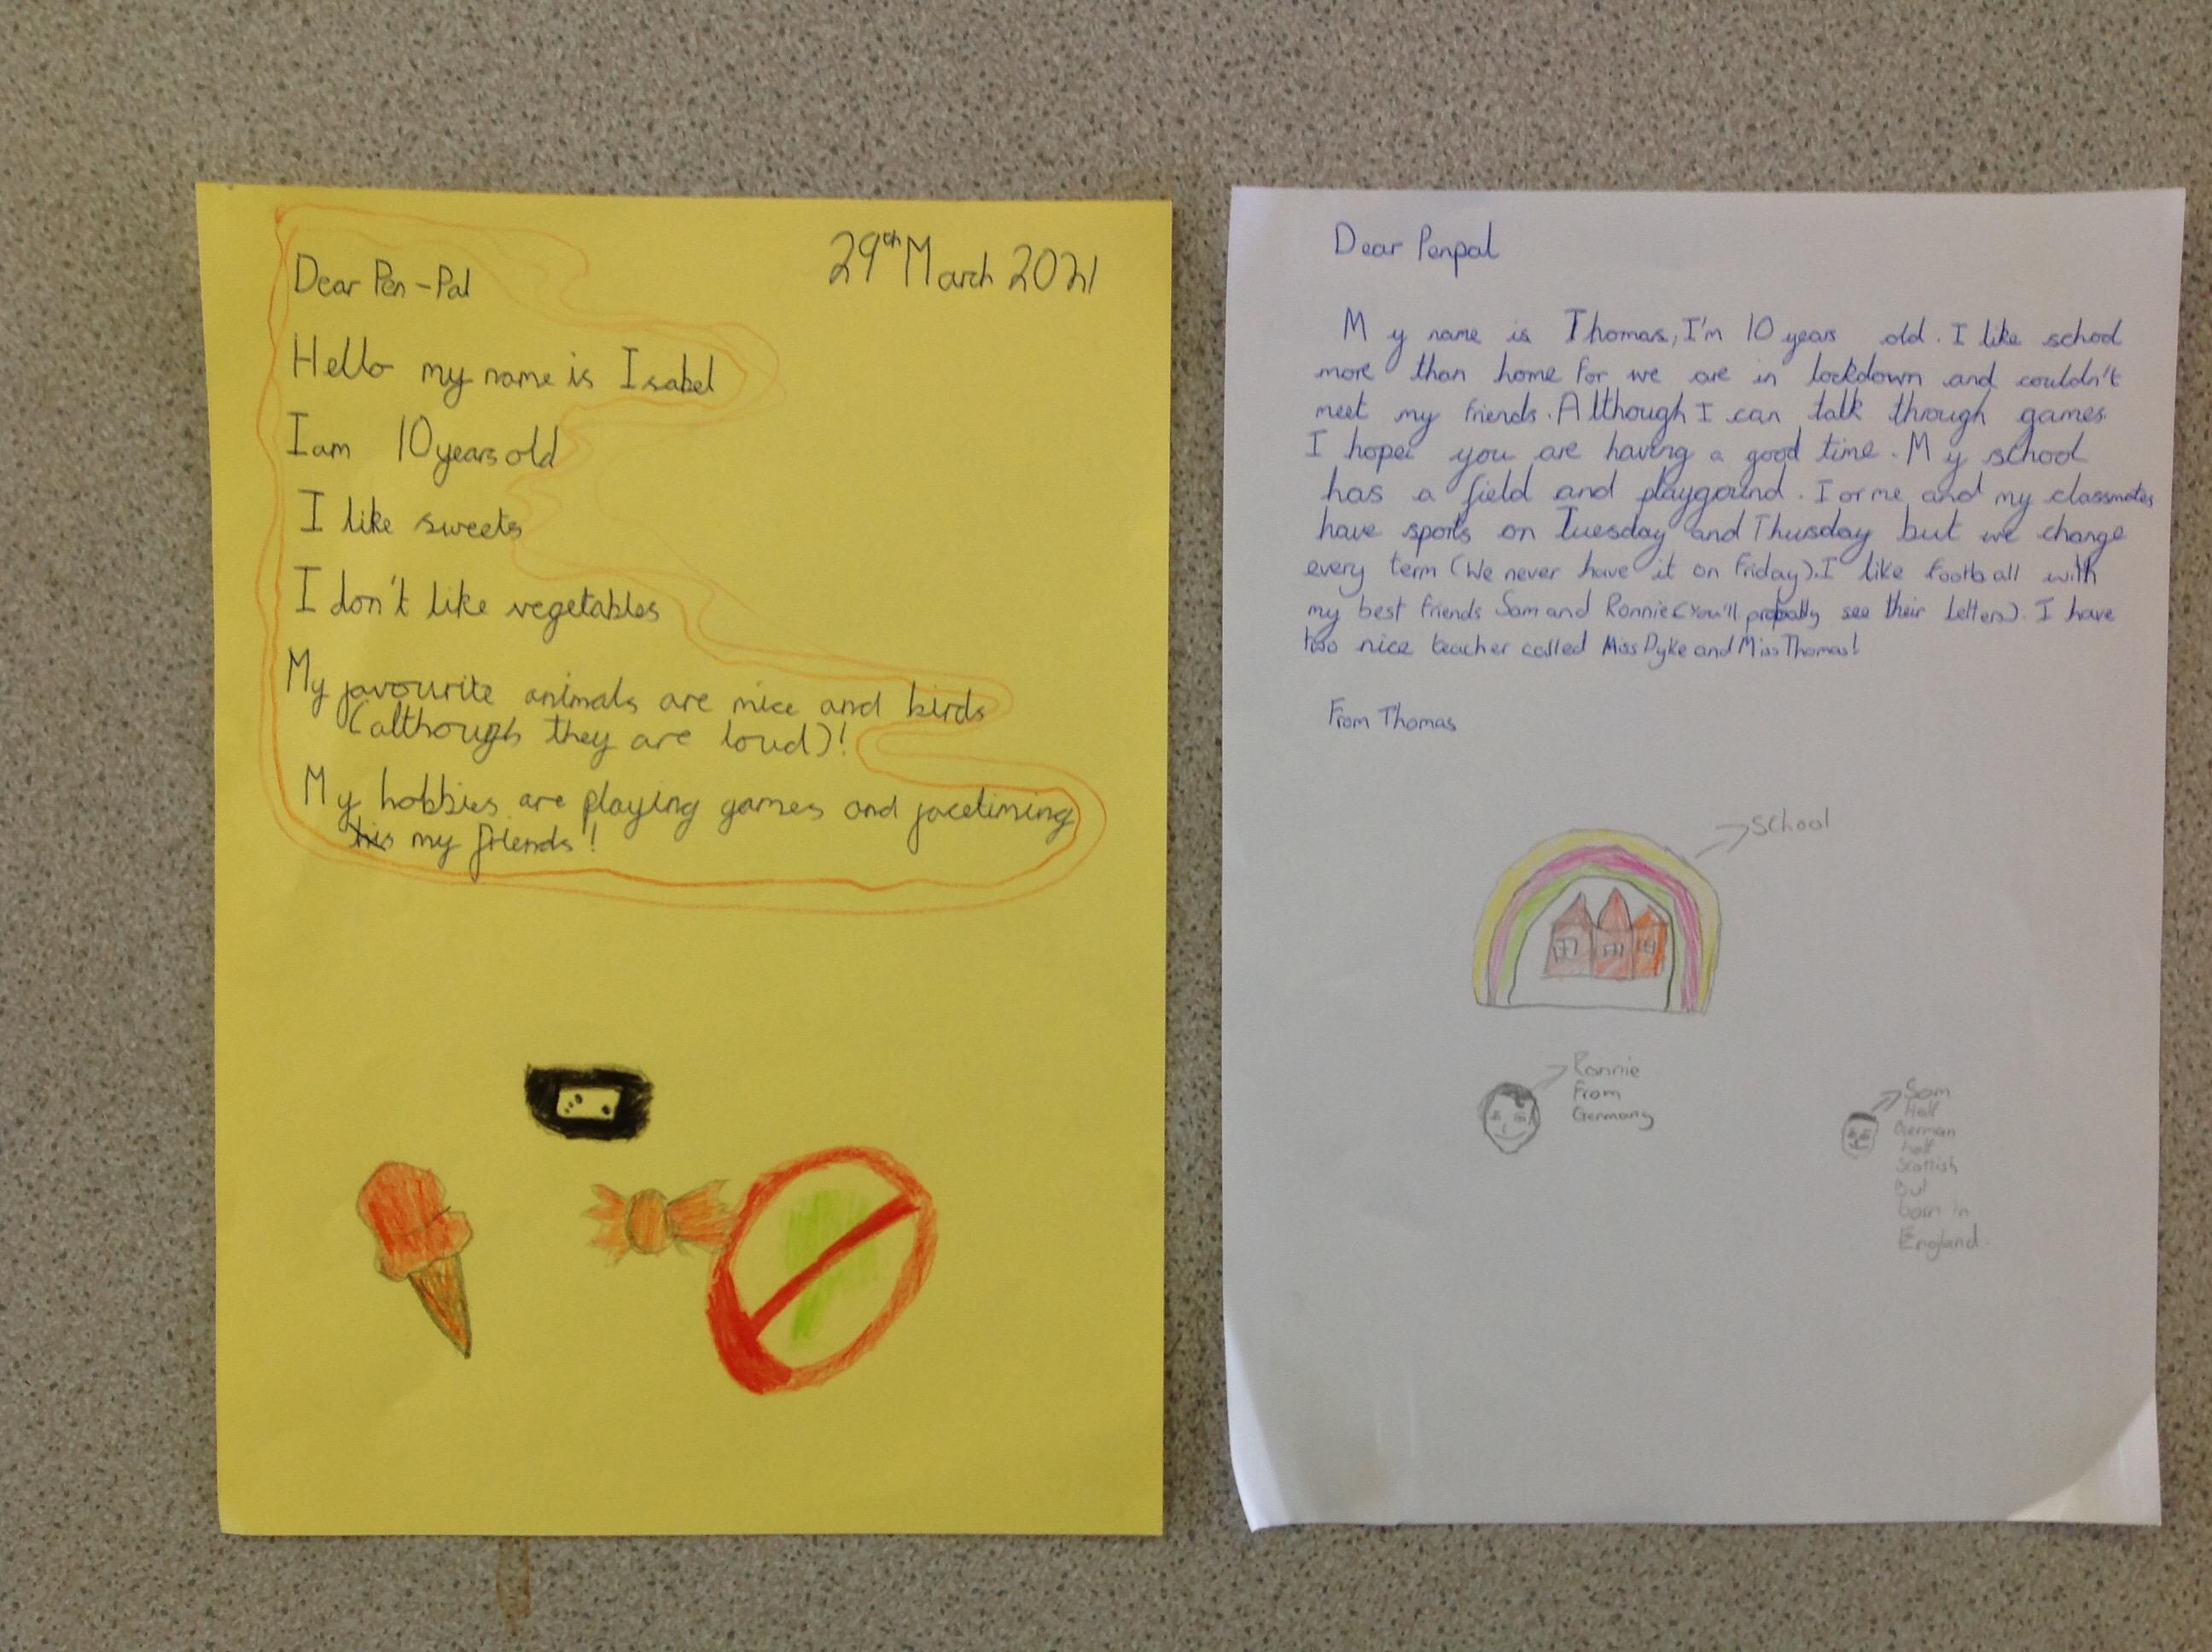 29th March 2021
Dear Pen-Pal
Hello my name is Isabel
I am 10 years old
I like sweets
I don't like vegetables
My favourite animals are mice and birds
(although they are loud)!
My hobbies are playing games and facetiming
my friends!
Dear Penpal
My name is Thomas, I'm 10 years old. I like school
more than home for we are in lockdown and couldn't
meet my friends. Although I can talk through games.
I hope you are having a good time. My school
has a field and playgound. I or me and my classmates
have sports on Tuesday and Thusday but we change
every term (We never have it on Friday). I like football with
my best friends Sam and Ronnie (You'll probably see their letters). I have
two nice teacher called Miss Dyke and Miss Thomas!
From Thomas
School
Ronnie
From
Germany
Sam
Half
German
half
Scottish
but
born in
England.